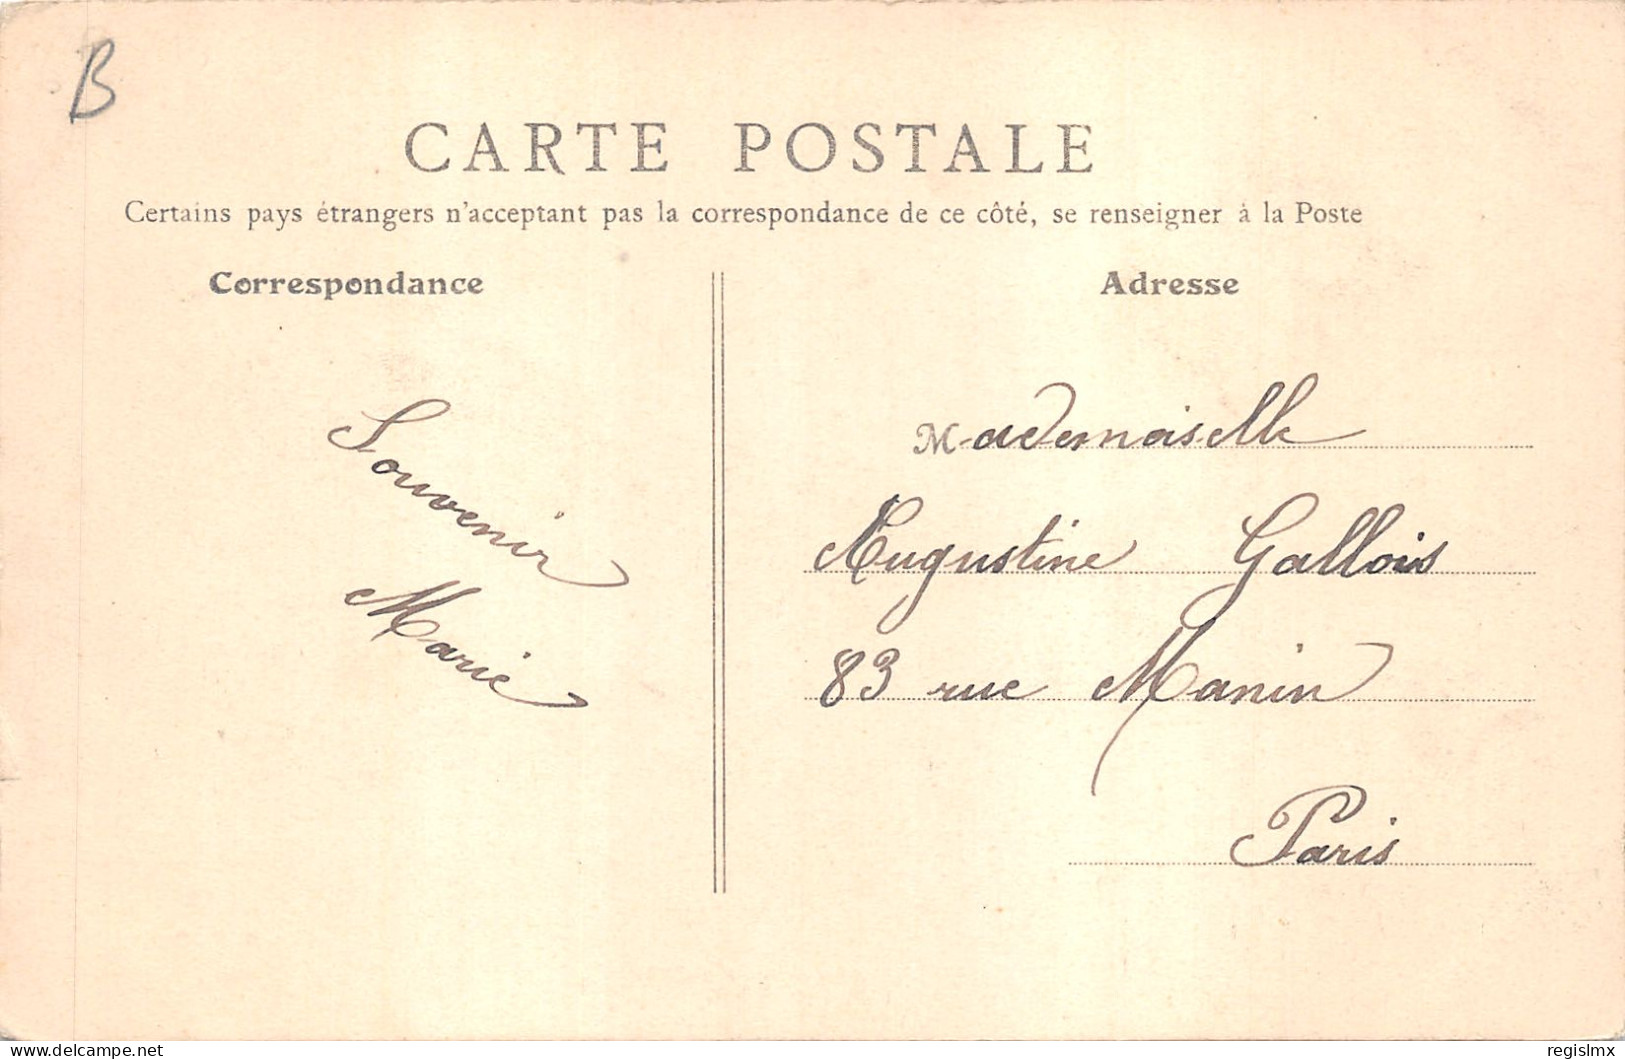 B
CARTE POSTALE
Certains pays étrangers n'acceptant pas la correspondance de ce côté, se renseigner à la Poste
Correspondance
Adresse
Souvenir
Marie
Mademoiselle
Augustine Gallois
83 rue Manin
Paris
www.delcampe.net
regislmx